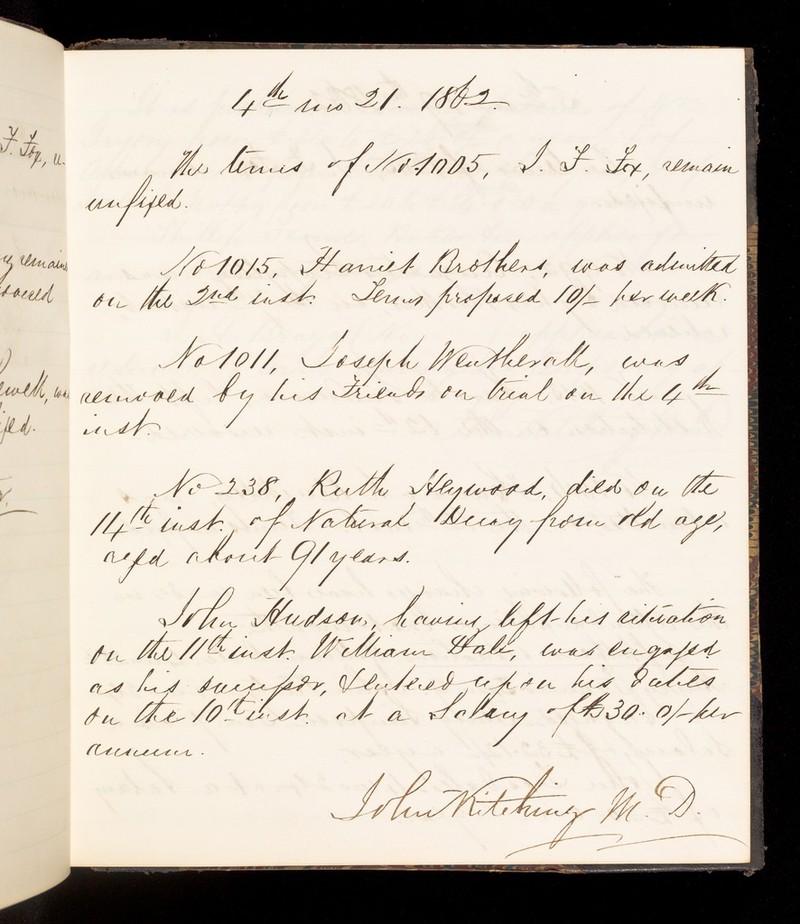 F. Fox, u-
remain
ewell, was
4th mo 21. 1862.
The terms of No. 1005, J. F. Fox, remain
unfixed.
No 1015, Harriet Brothers, was admitted
on the 2nd inst. Terms proposed 10/- per week.
No 1011, Joseph Weatherall, was
removed by his Friends on trial on the 4th
inst.
No 238, Ruth Heywood, died on the
14th inst. of Natural Decay from old age,
aged about 91 years.
John Hudson, having left his situation
on the 11th inst. William Hale, was engaged
as his successor, & entered upon his duties
on the 10th inst. at a Salary of £30. 0/- per
annum.
John Kitching M. D.